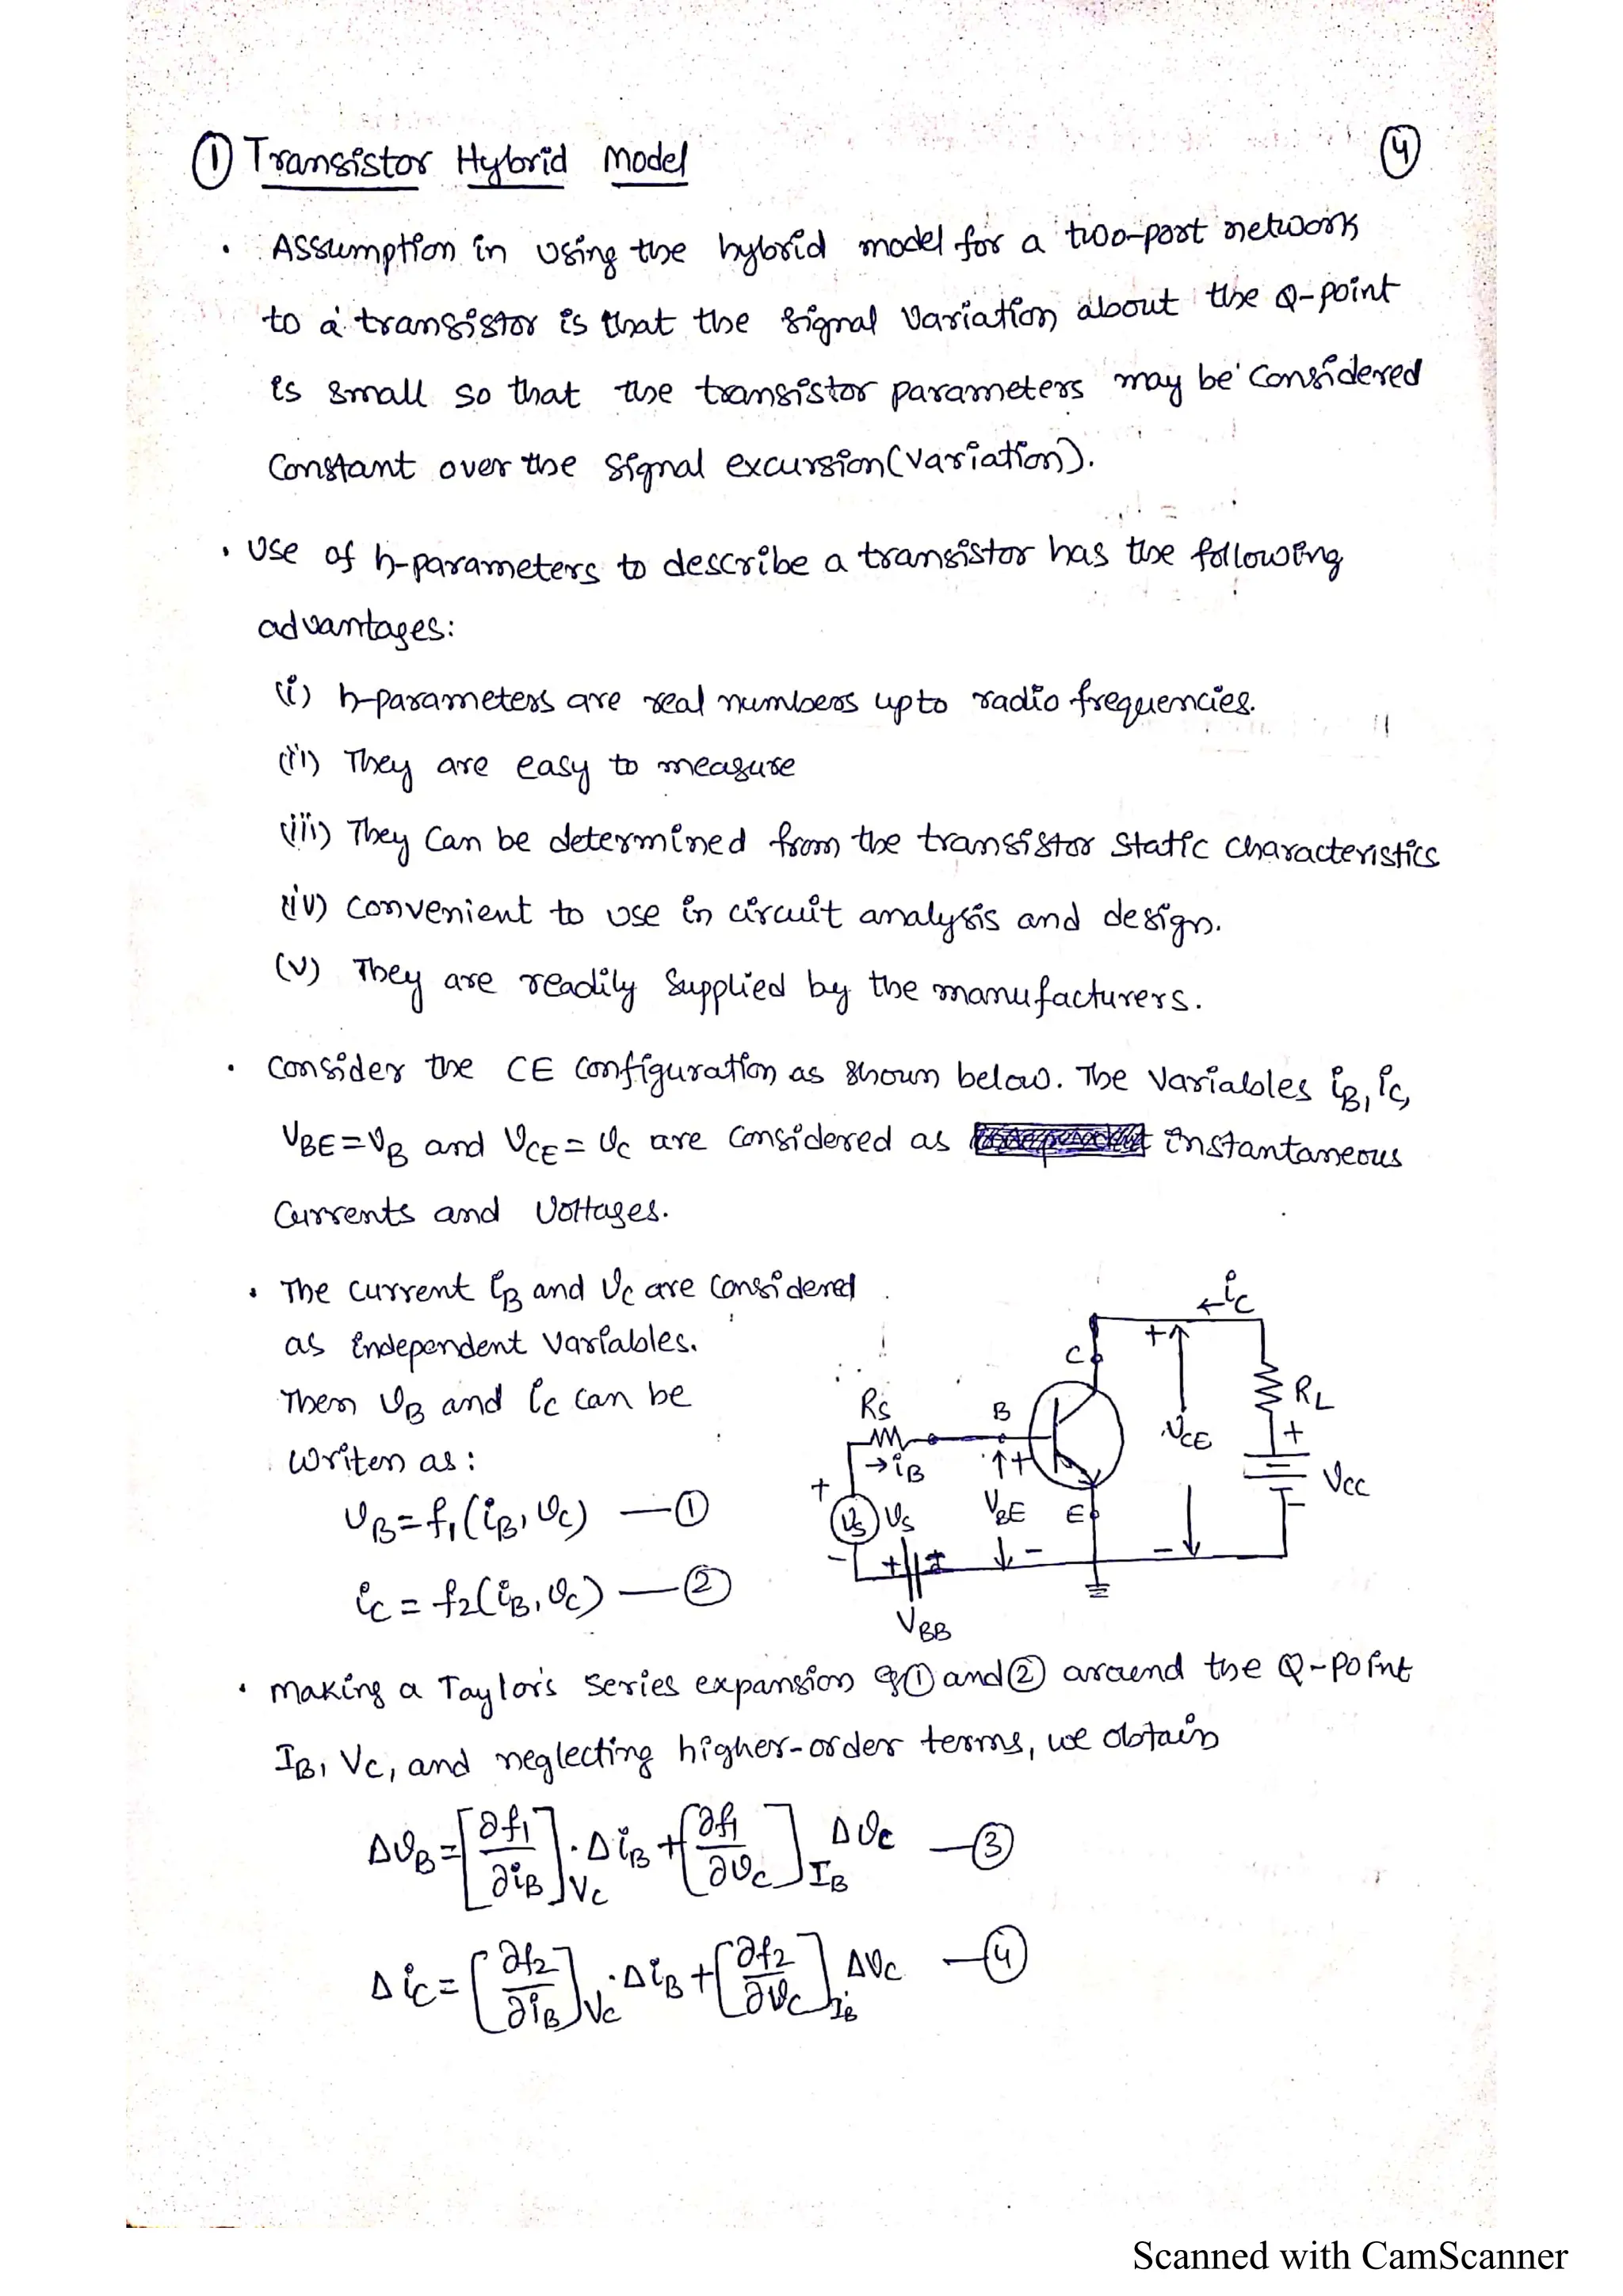 ① Transistor Hybrid Model
④
• Assumption in using the hybrid model for a two-port network
to a transistor is that the signal variation about the Q-point
is small so that the transistor parameters may be considered
constant over the signal excursion (variation).
• Use of h-parameters to describe a transistor has the following
advantages:
(i) h-parameters are real numbers upto radio frequencies.
(ii) They are easy to measure
(iii) They can be determined from the transistor static characteristics
(iv) convenient to use in circuit analysis and design.
(v) They are readily supplied by the manufacturers.
• Consider the CE configuration as shown below. The variables iB, iC,
VBE = VB and VCE = VC are considered as instantaneous
currents and voltages.
• The current iB and VC are considered
as independent variables.
Then VB and iC can be
writen as:
VB = f1(iB, VC) — ①
iC = f2(iB, VC) — ②
←iC
C
+
RL
RS
B
VCE
+
→iB
+
VCC
+
VS
VS
VBE
E
-
-
-
-
+
VBB
• Making a Taylor's series expansion of ① and ② around the Q-point
IB, VC, and neglecting higher-order terms, we obtain
ΔVB = [∂f1/∂iB]VC · ΔiB + [∂f1/∂VC]IB ΔVC — ③
ΔiC = [∂f2/∂iB]VC · ΔiB + [∂f2/∂VC]IB ΔVC — ④
Scanned with CamScanner